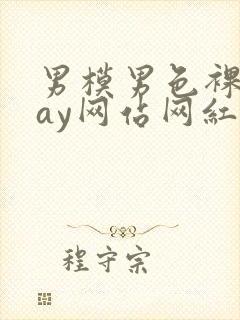 男模男色裸
ay网估网紅
程守宗